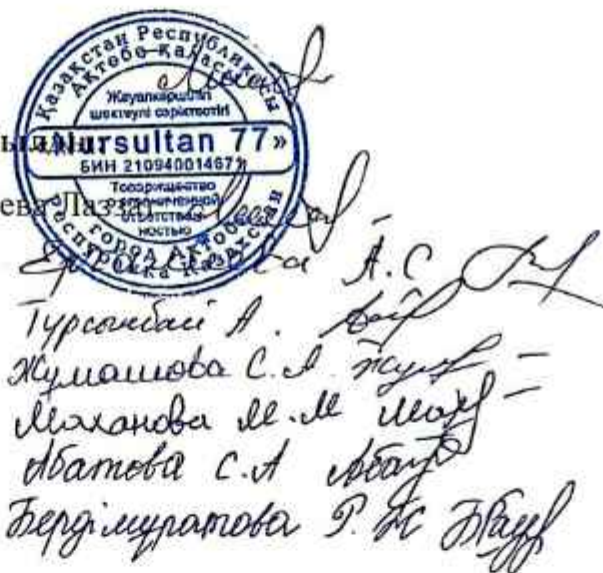 Қазақстан Республикасы
Ақтөбе қаласы
Жауапкершілігі
шектеулі серіктестігі
«Nursultan 77»
БИН 210940014671
Товарищество
с ограниченной
ответствен
ностью
город Актобе
Республика Казахстан
ева Лаззат
А.С
Турсынбай А.
Жумашова С.А Жум
Маханова М.М Мах
Абатова С.А Абат
Бердімуратова Р.Ж